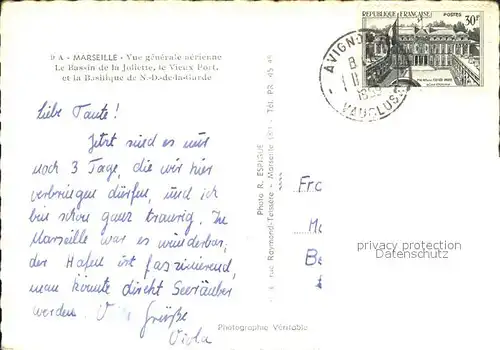 9 A - MARSEILLE - Vue générale aérienne
Le Bassin de la Joliette, le Vieux Port,
et la Basilique de N.-D.-de-la-Garde
RÉPUBLIQUE FRANÇAISE POSTES 30F
AVIGNON
1959
VAUCLUSE
Liebe Tante!
Jetzt sind es nur
noch 3 Tage, die wir hier
verbringen dürfen, und ich
bin schon ganz traurig. In
Marseille war es wunderbar,
der Hafen ist faszinierend,
man könnte direkt Seeräuber
werden. Grüße
Viola
Photo R. ESPIGUE
rue Raymond-Teissère - Marseille - Tél. PR
Photographie Véritable
Fr
Be
privacy protection
Datenschutz